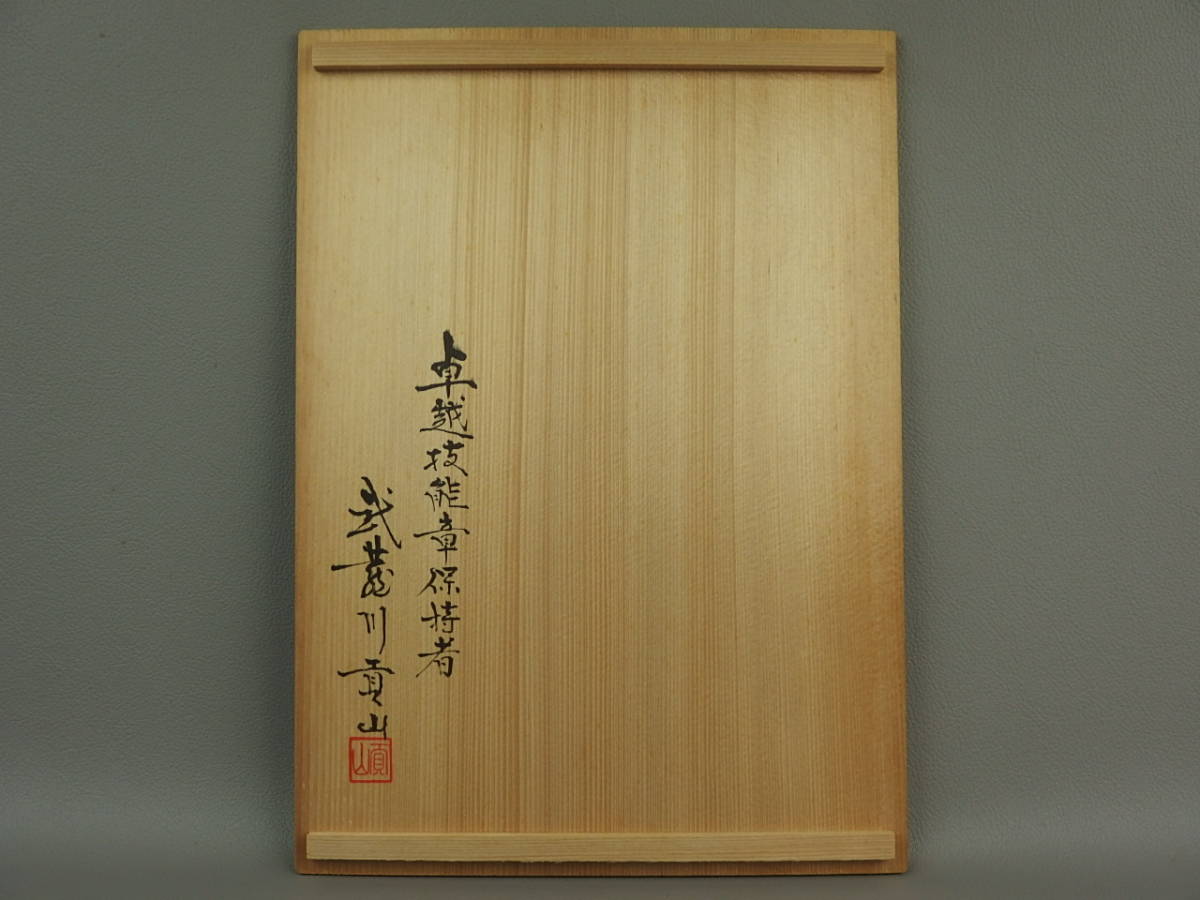 卓越技能章保持者
武蔵川貢山
貢山